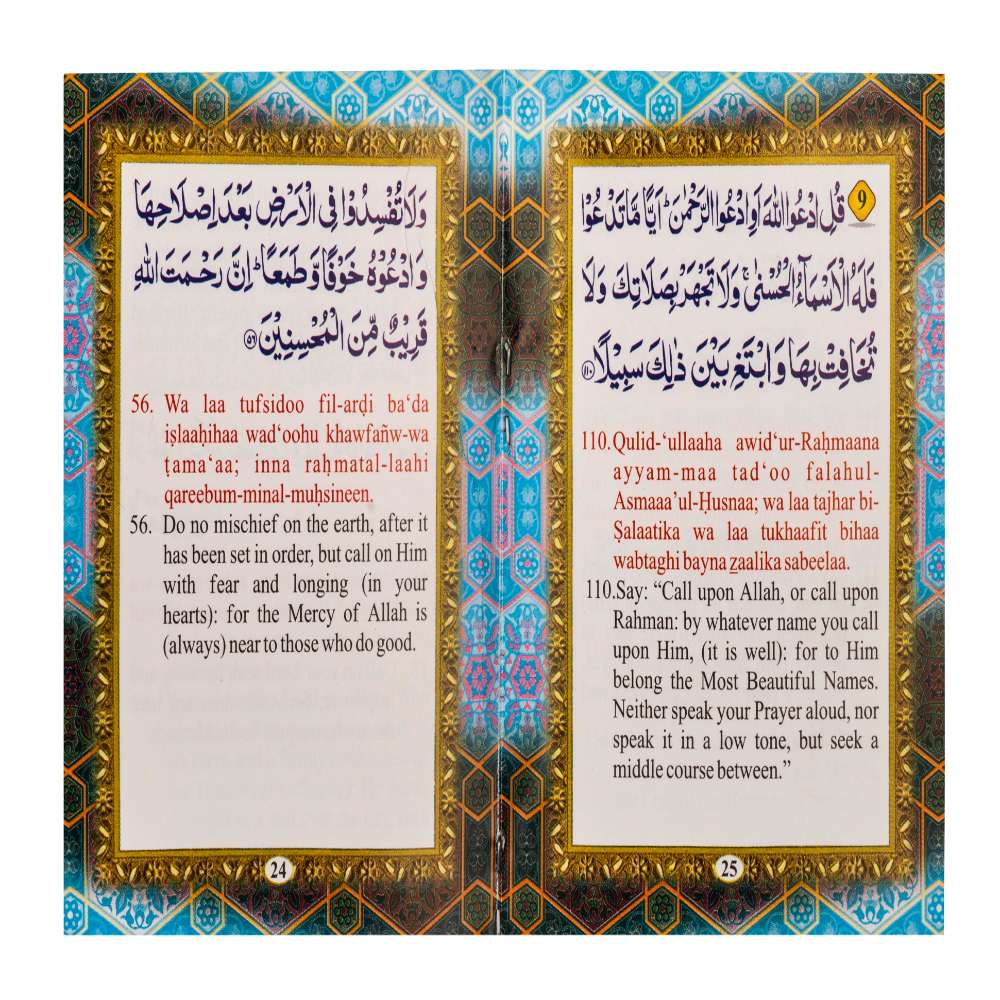 وَلَا تُفْسِدُوْا فِى الْاَرْضِ بَعْدَ اِصْلَاحِهَا
وَادْعُوْهُ خَوْفًا وَّطَمَعًا ؕ اِنَّ رَحْمَتَ اللّٰهِ
قَرِيْبٌ مِّنَ الْمُحْسِنِيْنَ ۝۵۶
56. Wa laa tufsidoo fil-arḍi ba‘da
iṣlaaḥihaa wad‘oohu khawfañw-wa
ṭama‘aa; inna raḥmatal-laahi
qareebum-minal-muḥsineen.
56. Do no mischief on the earth, after it
has been set in order, but call on Him
with fear and longing (in your
hearts): for the Mercy of Allah is
(always) near to those who do good.
24
9 قُلِ ادْعُوا اللّٰهَ اَوِ ادْعُوا الرَّحْمٰنَ ؕ اَيًّا مَّا تَدْعُوْا
فَلَهُ الْاَسْمَآءُ الْحُسْنٰى ۚ وَلَا تَجْهَرْ بِصَلَاتِكَ وَلَا
تُخَافِتْ بِهَا وَابْتَغِ بَيْنَ ذٰلِكَ سَبِيْلًا ۝۱۱۰
110.Qulid-‘ullaaha awid‘ur-Raḥmaana
ayyam-maa tad‘oo falahul-
Asmaaa’ul-Ḥusnaa; wa laa tajhar bi-
Ṣalaatika wa laa tukhaafit bihaa
wabtaghi bayna z̲aalika sabeelaa.
110.Say: “Call upon Allah, or call upon
Rahman: by whatever name you call
upon Him, (it is well): for to Him
belong the Most Beautiful Names.
Neither speak your Prayer aloud, nor
speak it in a low tone, but seek a
middle course between.”
25